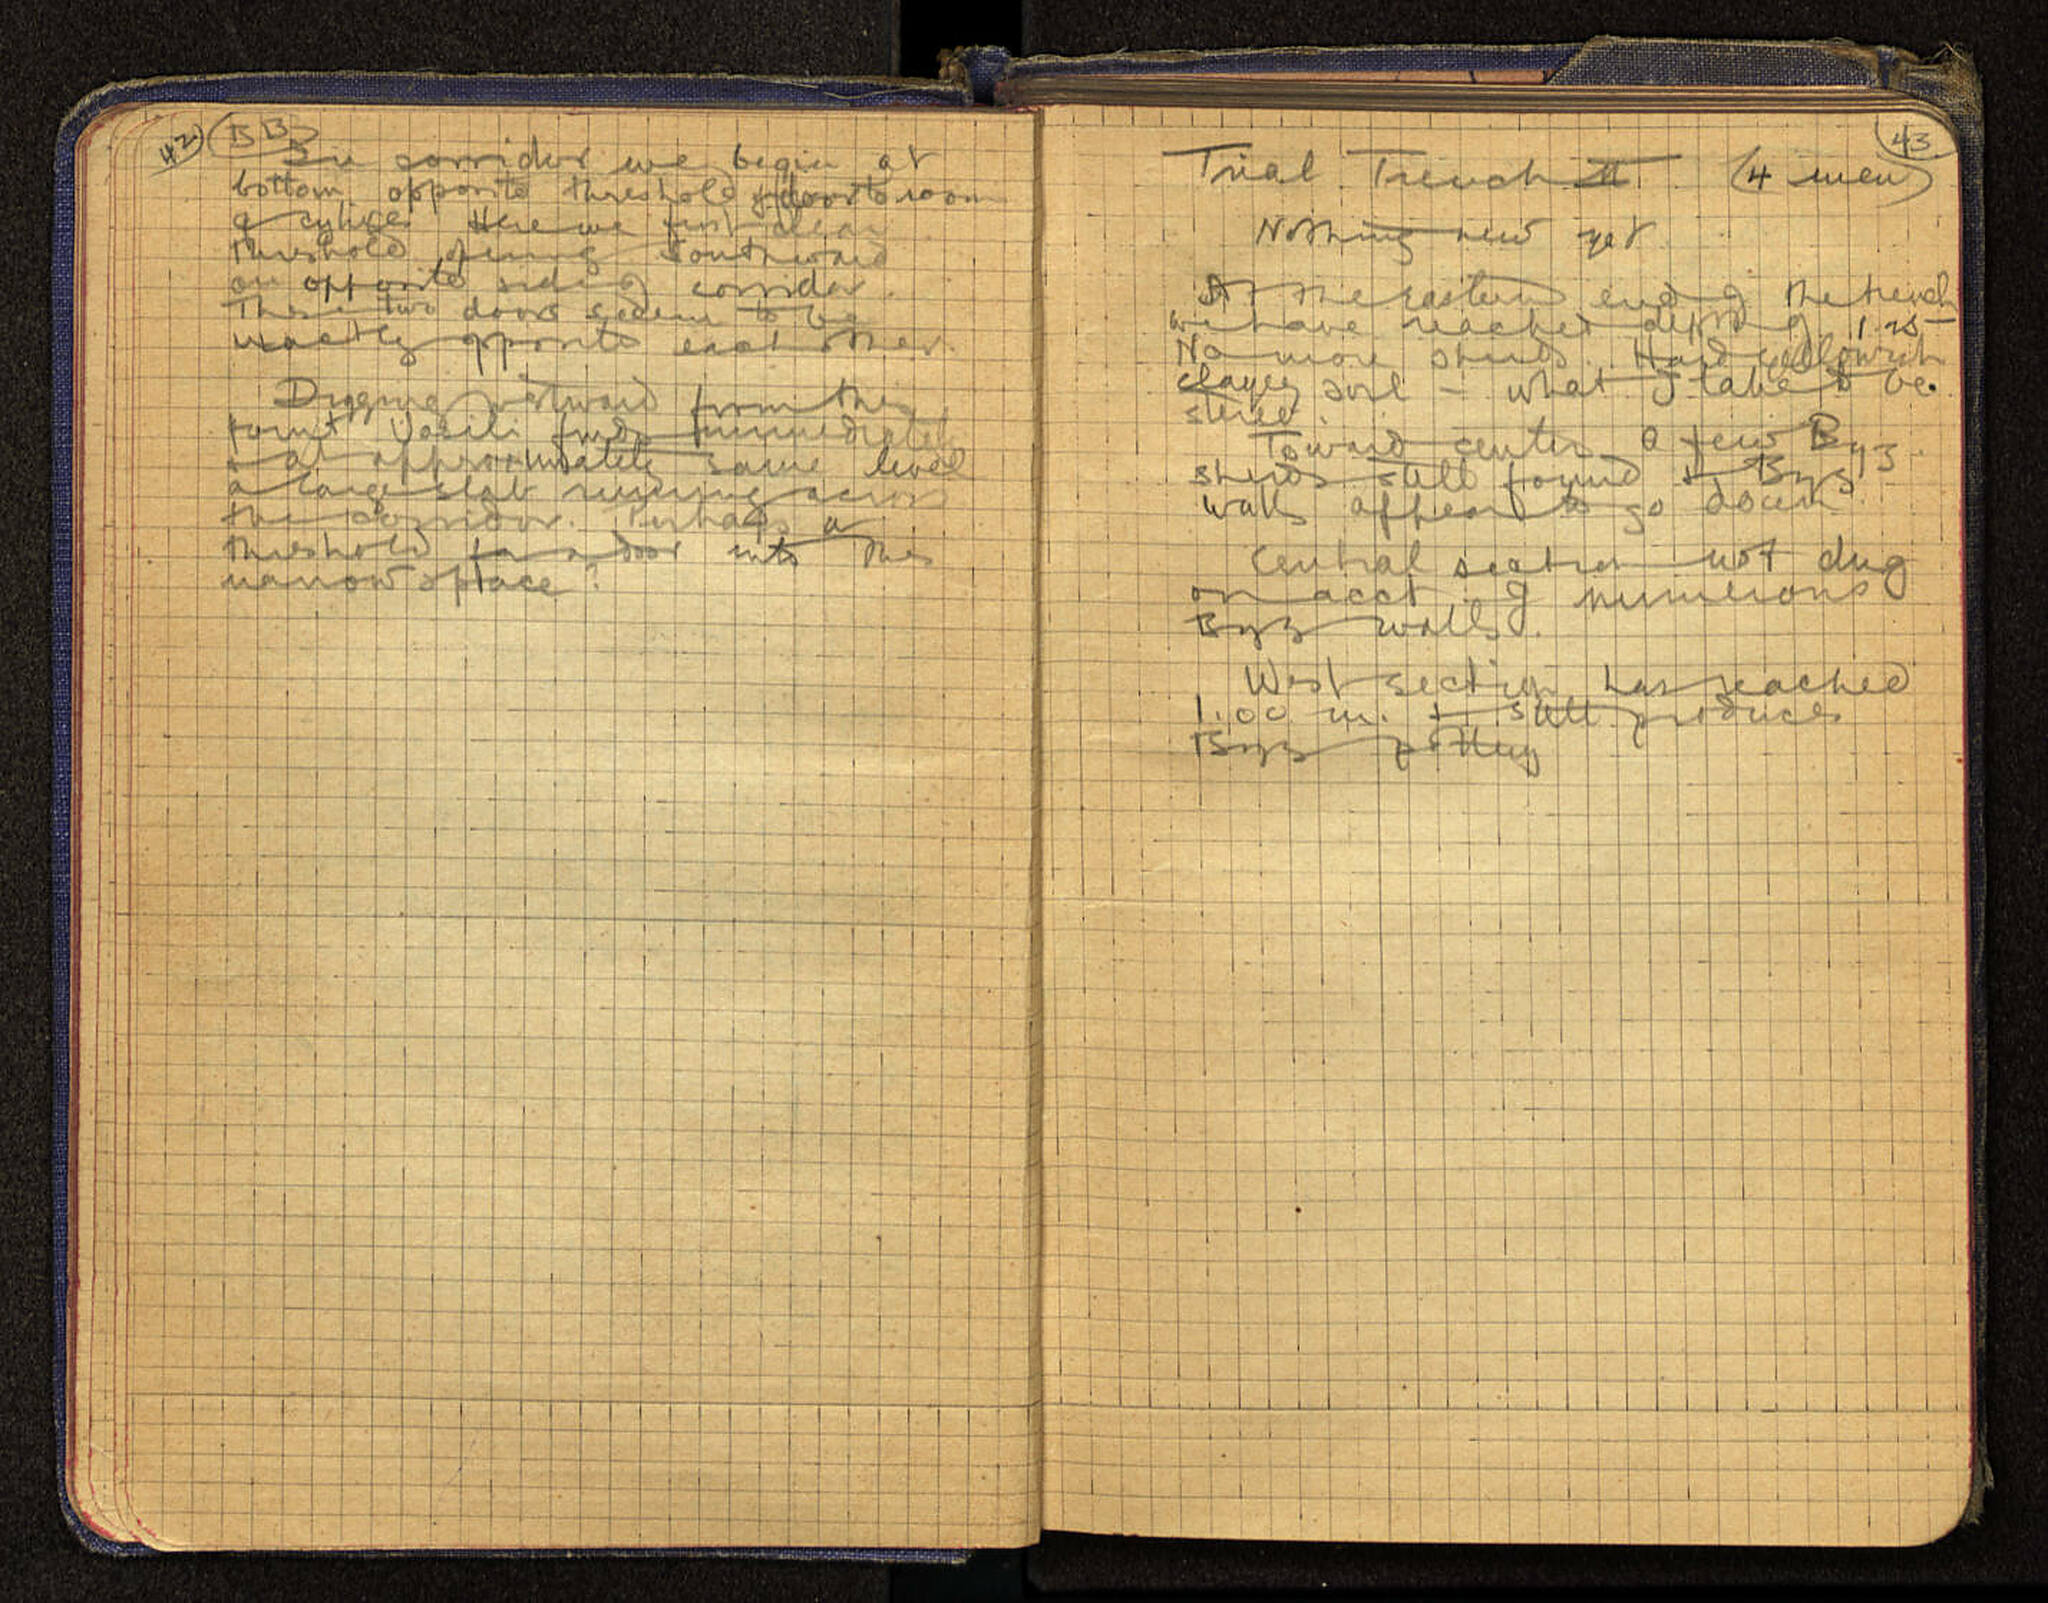 42 BB
In corridor we begin at
bottom opposite threshold of door to room
of cylixes. Here we first clear
threshold opening southward
on opposite side of corridor.
These two doors seem to be
exactly opposite each other.
Digging westward from this
point Vasili finds immediately
& at approximately same level
a large slab running across
the corridor. Perhaps a
threshold for a door into this
narrow space?
43
Trial Trench II (4 men)
Nothing new yet
At the eastern end of the trench
we have reached depth of 1.25
No more sherds. Hard yellowish
clayey soil - what I take to be
stereo.
Toward center a few Byz
sherds still found & Byz
walls appear to go down
Central section not dug
on acct. of numerous
Byz walls.
West section has reached
1.00 m. & still produces
Byz pottery